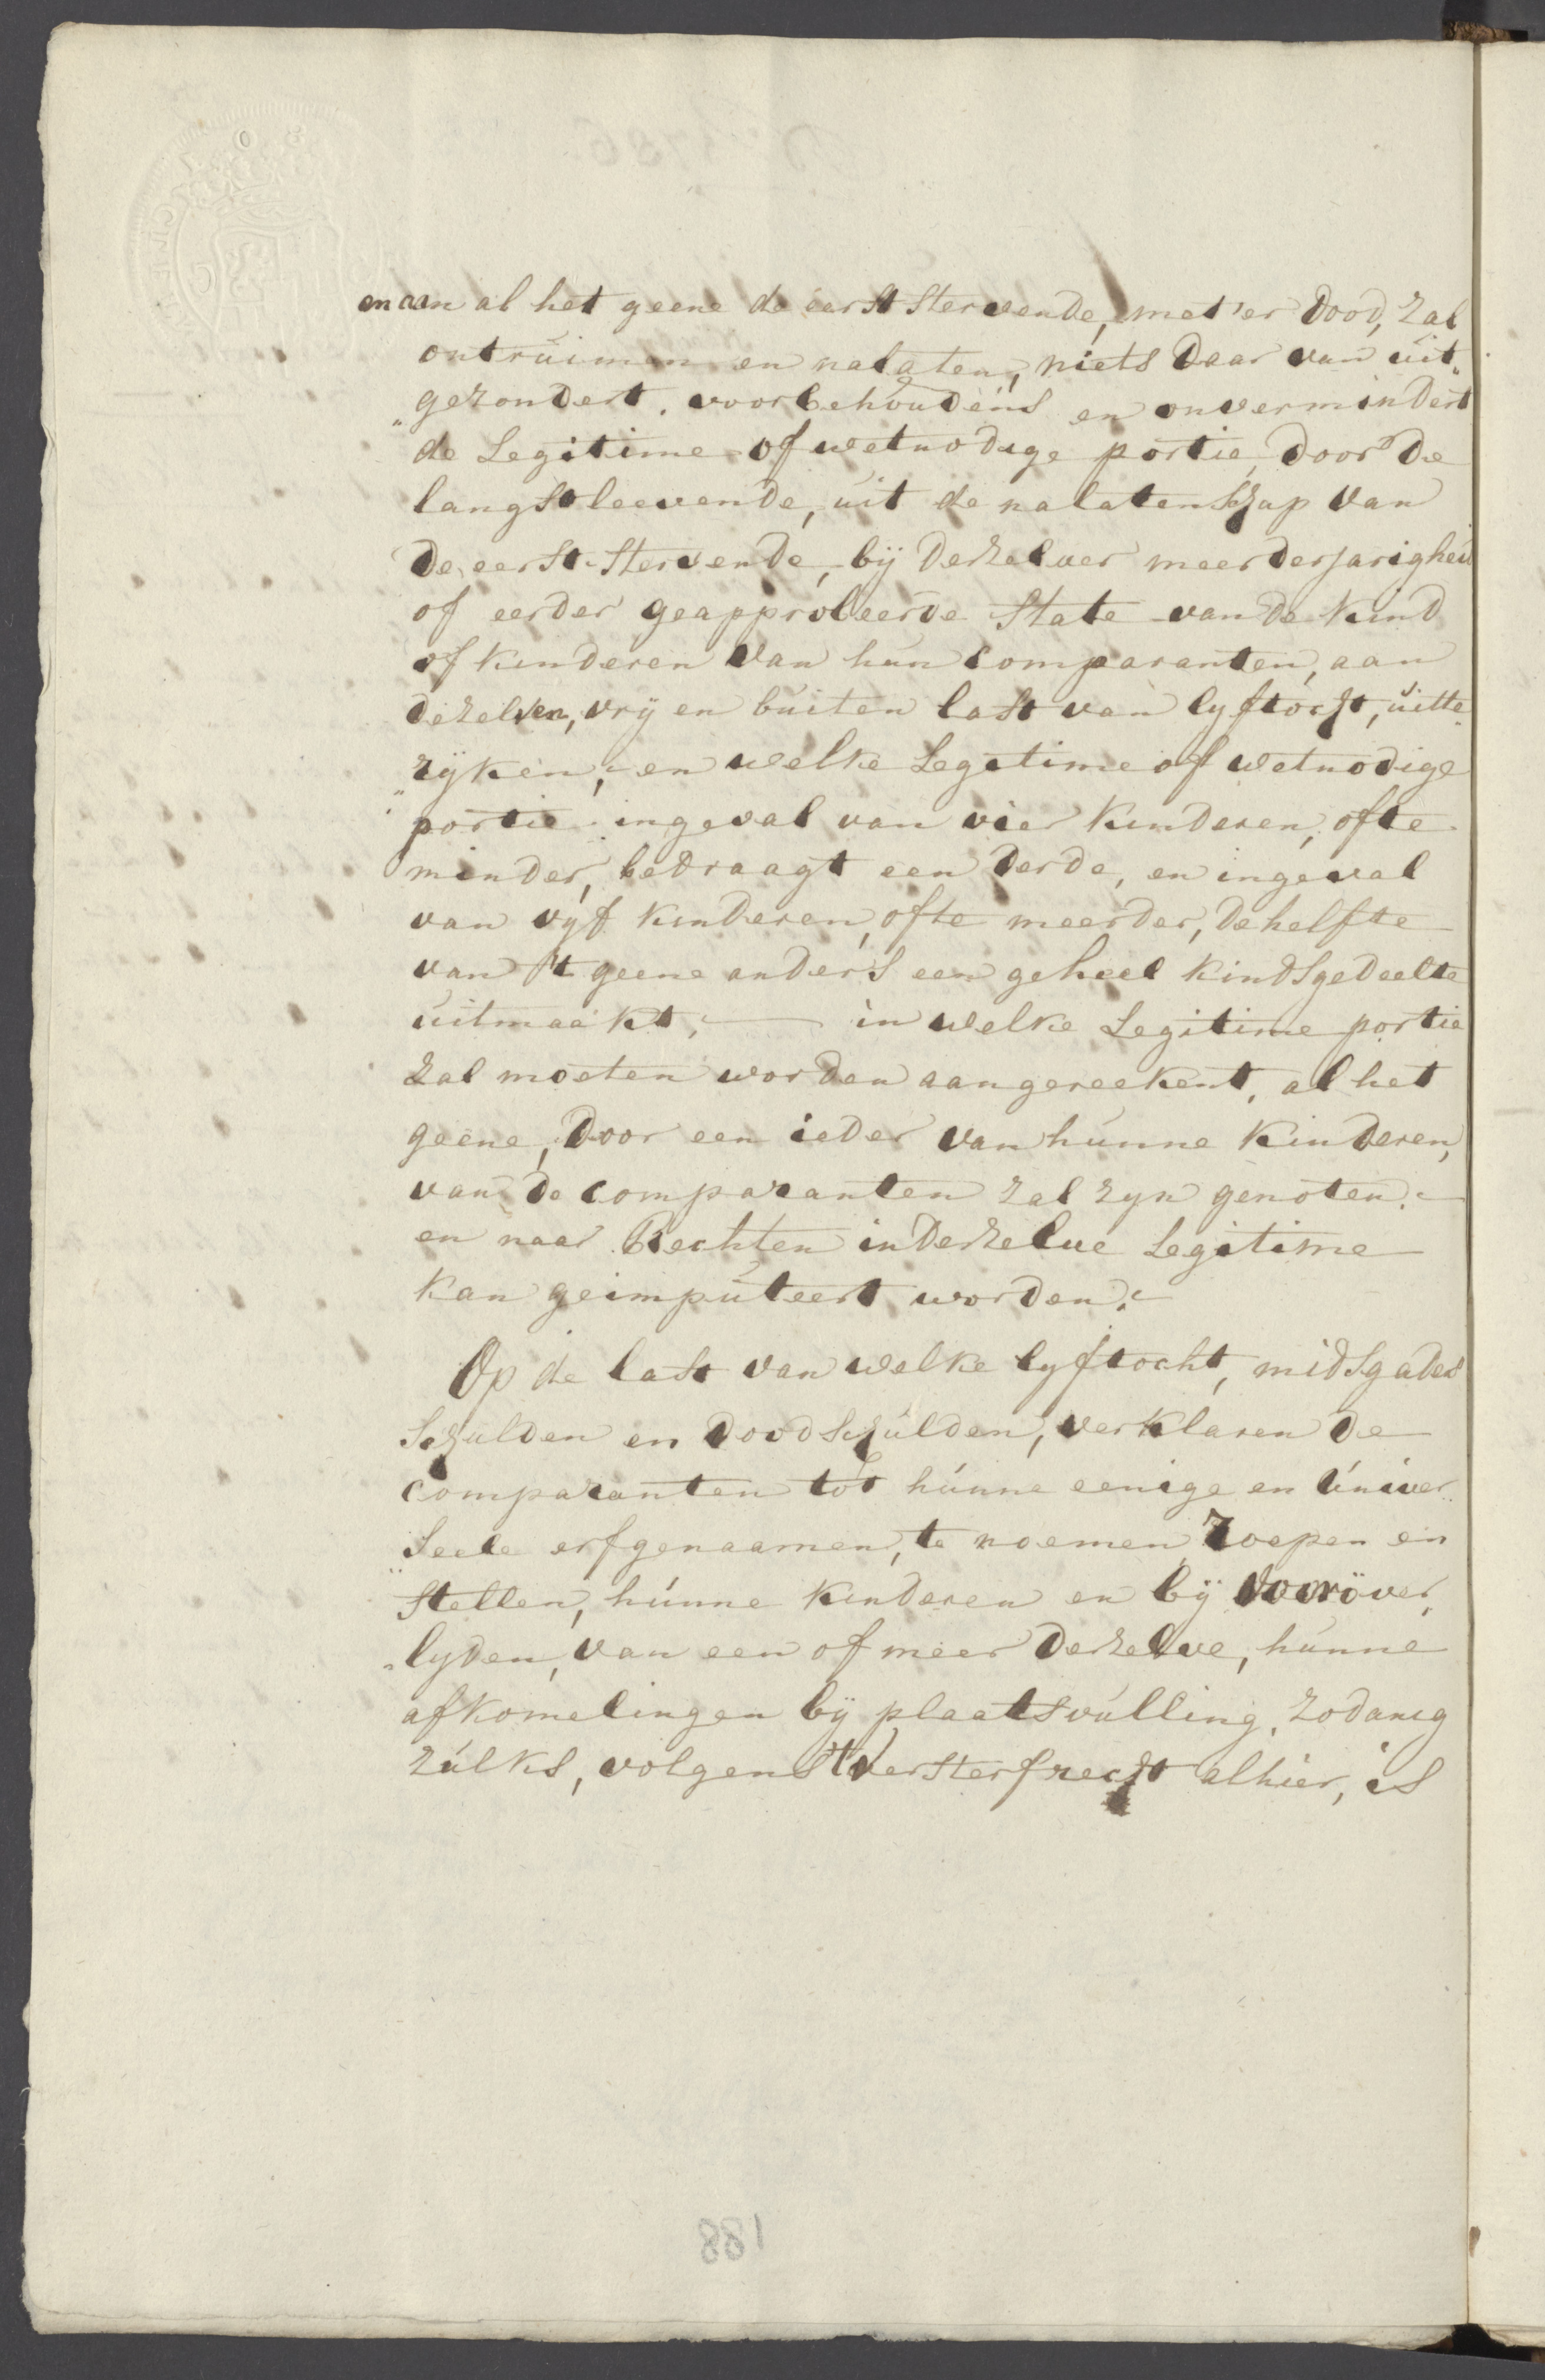 en aan al het geene de eerst stervende, met'er dood, zal
ontruimen en nalaten, niets daar van uit„
„gezondert, voorbehoudens en onvermindert
de Legitime of wetnodige portie, door de
langstleevende, uit de nalatenschap van
de eerst-stervende, bij dezelver meerderjarigheid
of eerder geapprobeerde state van de kind
of kinderen van hun comparanten, aan
dezelven, vrij en buiten last van lyftocht, uitte„
„rijken; en welke Legitime of wetnodige
portie ingeval van vier kinderen, ofte
minder, bedraagt een derde, en ingeval
van vyf kinderen, ofte meerder, de helfte
van 't geene anders een geheel kindsgedeelte
uitmaakt; — in welke Legitime portie
zal moeten worden aangereekent, al het
geene, door een ieder van hunne kinderen,
van de comparanten zal zyn genoten.
en naar Rechten in dezelve Legitime
kan geimputeert worden.
Op de last van welke lyftocht, midsgaders
schulden en doodschulden, verklaren de
comparanten tot hunne eenige en univer„
„seele erfgenaamen, te noemen, roepen en
stellen, hunne kinderen en bij vooröver„
„lyden, van een of meer dezelve, hunne
afkomelingen bij plaatsvulling, zodanig
zulks, volgens 't versterfrecht alhier, is
188